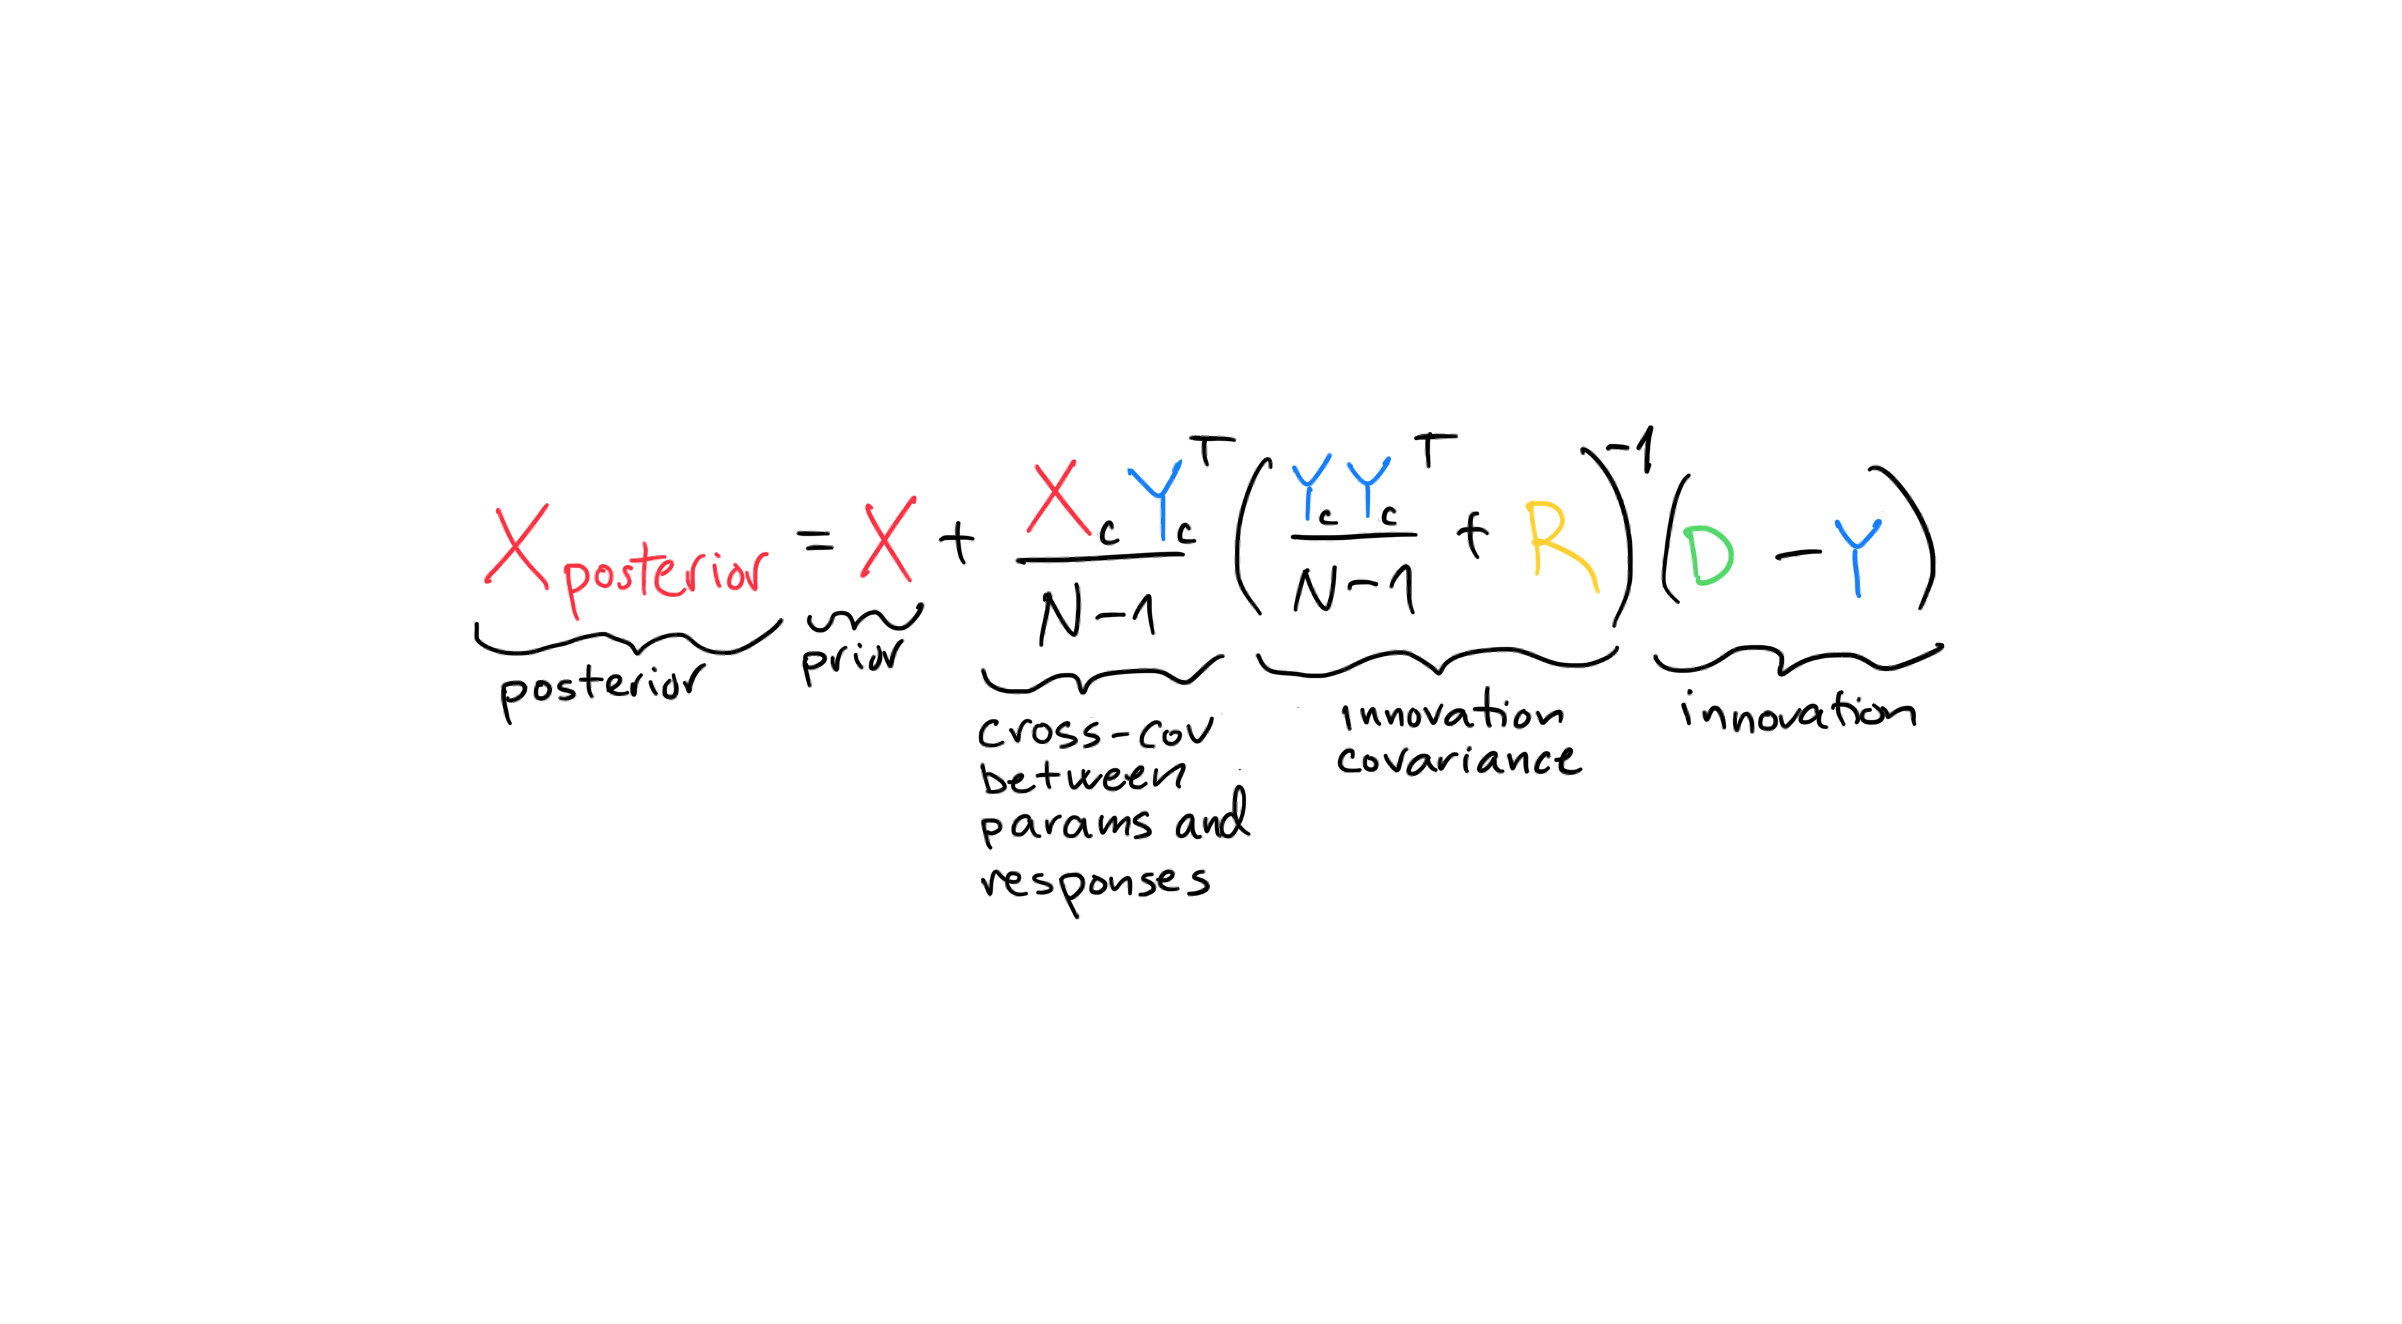 X_posterior = X + (X_c Y_c^T)/(N-1) ((Y_c Y_c^T)/(N-1) + R)^-1 (D - Y)
posterior
prior
cross-cov
between
params and
responses
innovation
covariance
innovation